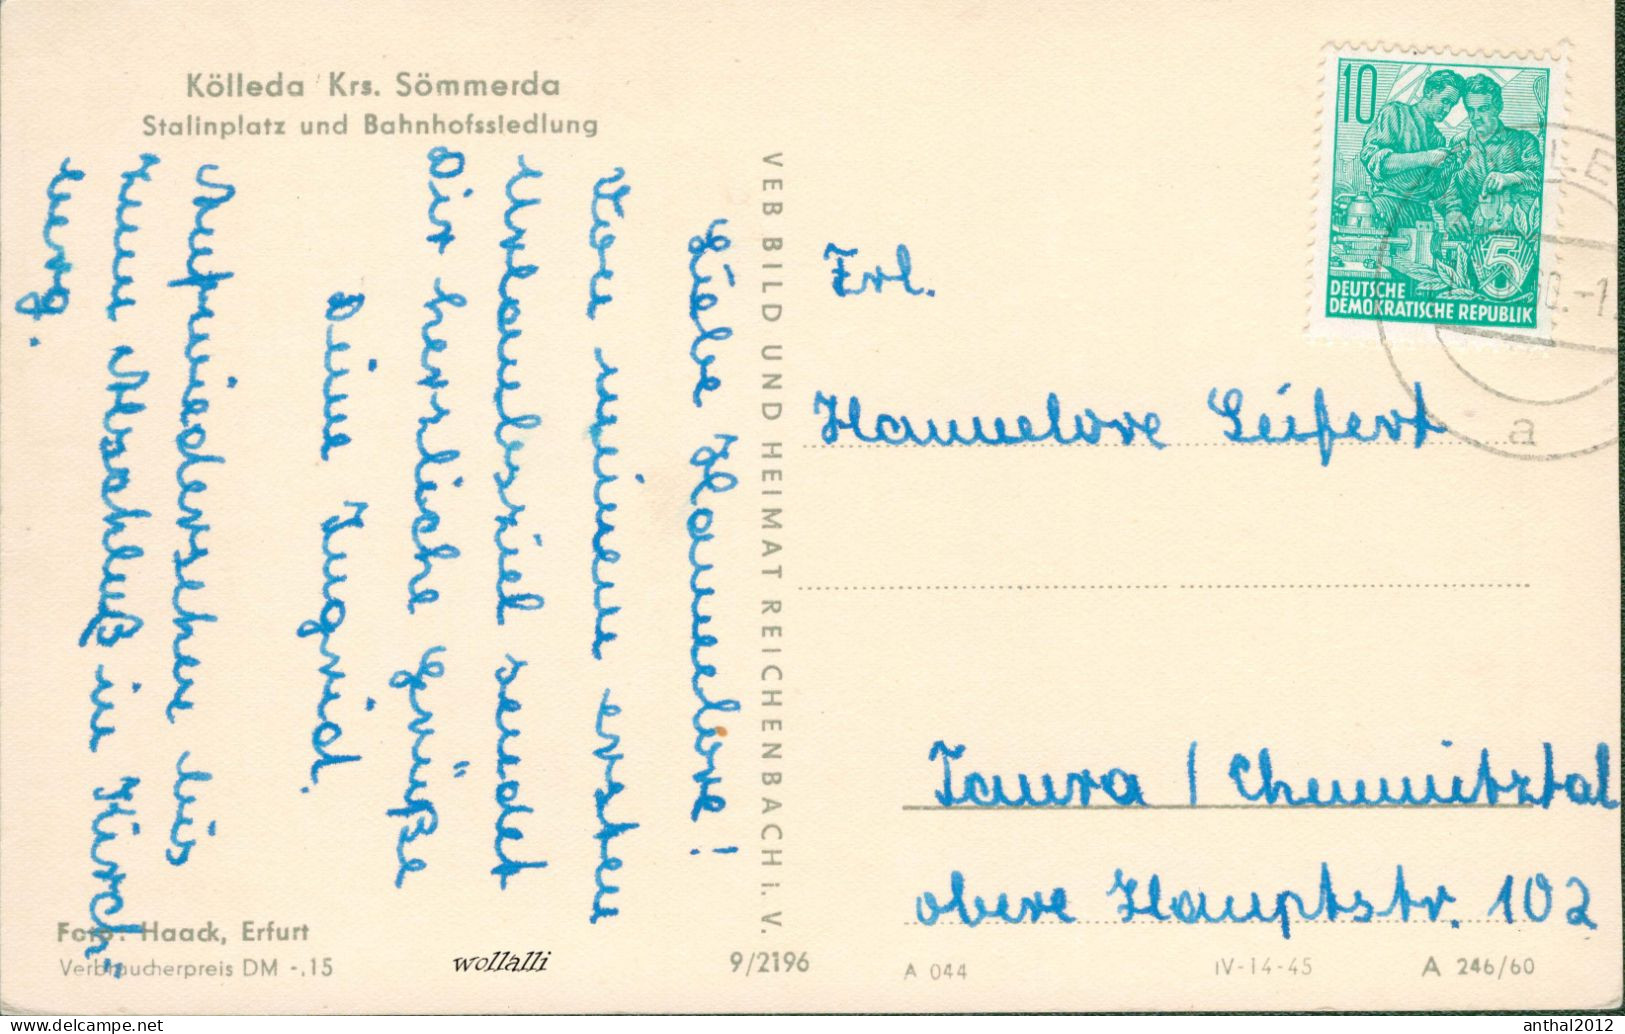 Kölleda Krs. Sömmerda
Stalinplatz und Bahnhofssiedlung
Liebe Hannelore!
Von meinem ersten
Urlaubsziel sendet
Dir herzliche Grüße
Deine Ingrid.
Aufwiedersehen bis
zum Abschluß in Kirch-
berg.
VEB BILD UND HEIMAT REICHENBACH i. V.
10
5
DEUTSCHE
DEMOKRATISCHE REPUBLIK
60.-1
a
Frl.
Hannelore Seifert
Taura / Chemnitztal
obere Hauptstr. 102
Foto: Haack, Erfurt
Verbraucherpreis DM -.15
wollalli
9/2196
A 044
IV-14-45
A 246/60
anthal2012